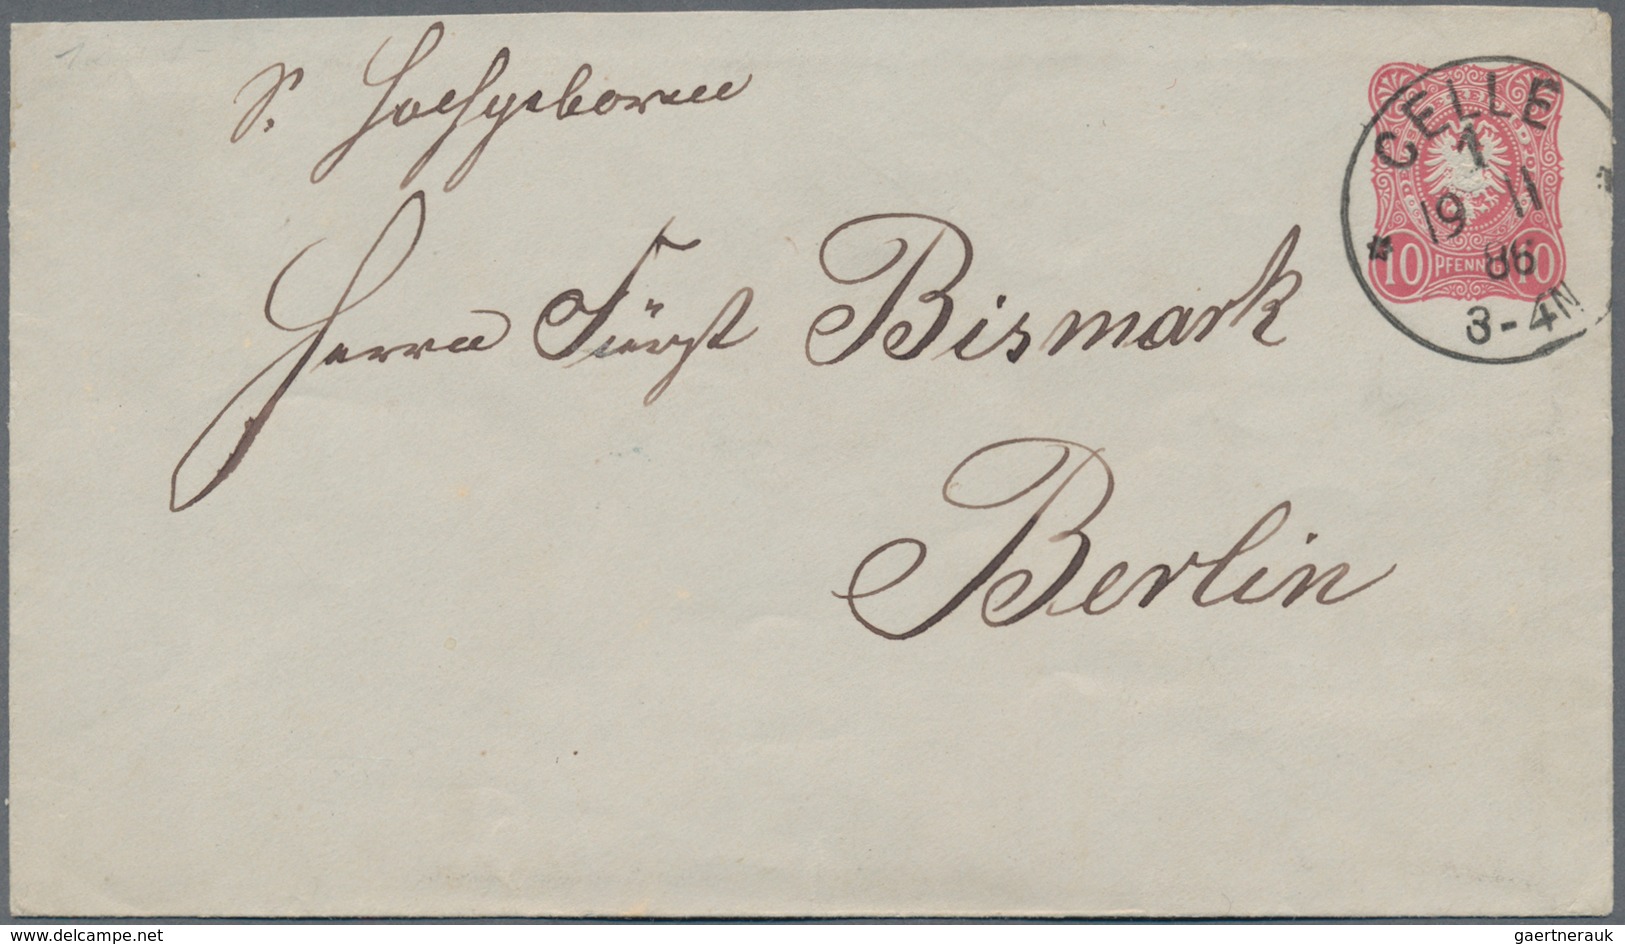 S. Hochgeboren
Herrn Fürst Bismark
Berlin
CELLE
1
19 11
86
3-4N
10 PFENNIG 10
www.delcampe.net
gaertnerauk